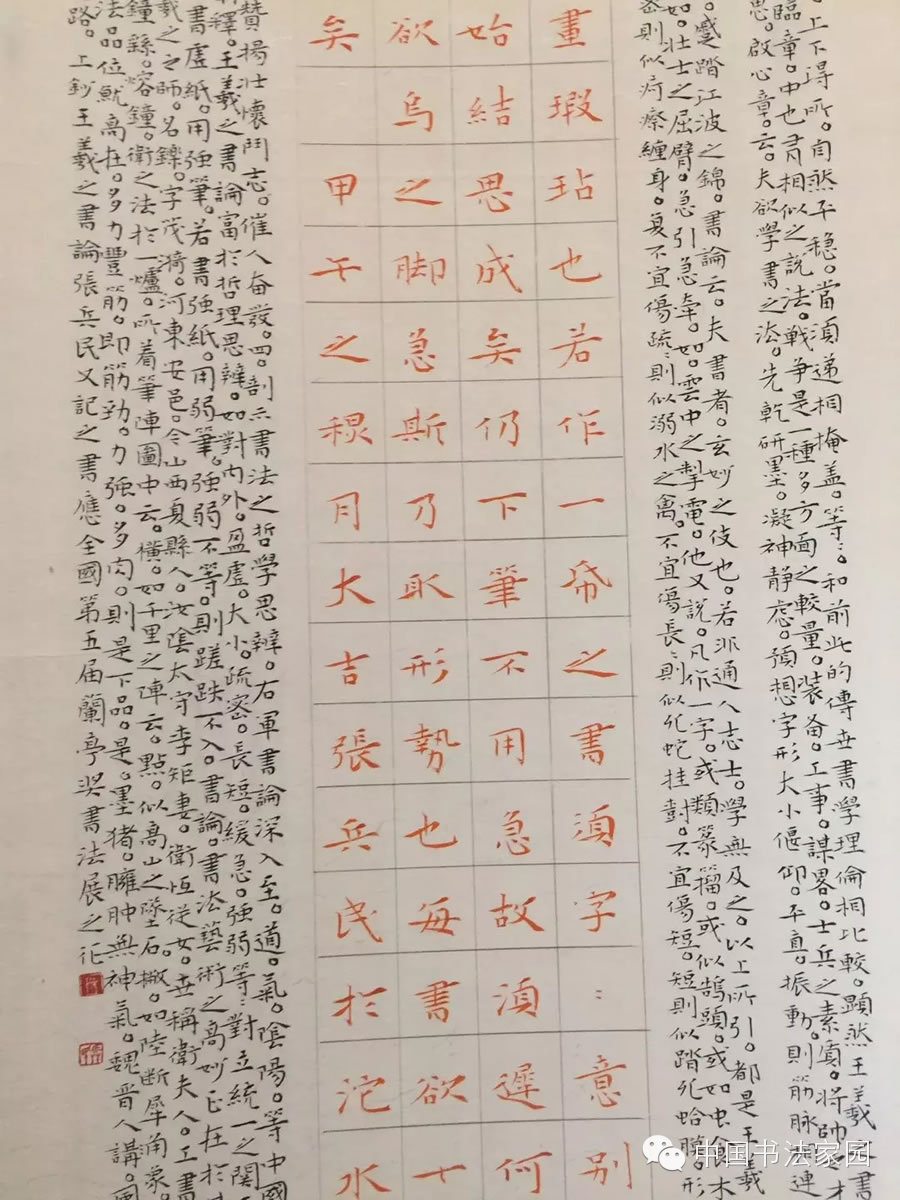 上下得所。自然平稳。當須递相掩盖。等::和前此的傳世書學理倫相比較。顯然王羲之書
臨章。中也有相似之說法。戰争是一種多方面之較量。装备。工事。謀畧。士兵之素質。將帥之才
思。啟心章。云。夫欲學書之法。先乾研墨。凝神静慮。預想字形大小偃仰。平直。振動。則筋脉相連
。蹙踏江波之錦。書論云。夫書者。玄妙之伎也。若非通人志士。學無及之。以上所引。都是王羲
如。壯士之屈臂。急引急牽。如。雲中之掣電。他又説。凡作一字。或類篆籀。或似鵠頭。或如虫食木
則似疴瘵纏身。复不宜傷疏::則似溺水之禽。不宜傷長::則似死蛇挂樹。不宜傷短。短則似踏死蛤蟆。形
畫瑕玷也若作一帋之書湏字:意别
始結思成矣仍下筆不用急故湏遲何
欲烏之脚急斯乃取形勢也每書欲十
矣 甲午之穏月大吉張兵民於沱水
贊揚壯懷鬥志。催人奋發。四。剖示書法之哲學思辨。右軍書論深入至。道。氣。陰陽。等中國
新釋。王羲之書論富於哲理思辨。如對内外。盈虚。大小。疏密。長短。緩急。强弱等::對立統一之関
書虚紙。用强筆。若書强紙。用弱筆。强弱不等。則蹉跌不入。書論。書法藝術之高妙正在於
羲之之師。名鑠。字茂漪。河東安邑。令山西夏縣人。汝陰太守李矩妻。衛恒從女。世稱衛夫人。工書
鐘繇。熔鐘。衛之法於一爐。所着筆陣圖中云。横。如千里之陣云。點。似高山之墜石。撇。如陸断犀角象。
法品位高在。多力豐筋。即筋勁。力强。多肉。則是下品。是。墨猪。臃肿無神氣。魏晋人講。圆
路。上鈔王羲之書論張兵民又記之書應全國第五届蘭亭奖書法展之作
中国书法家园